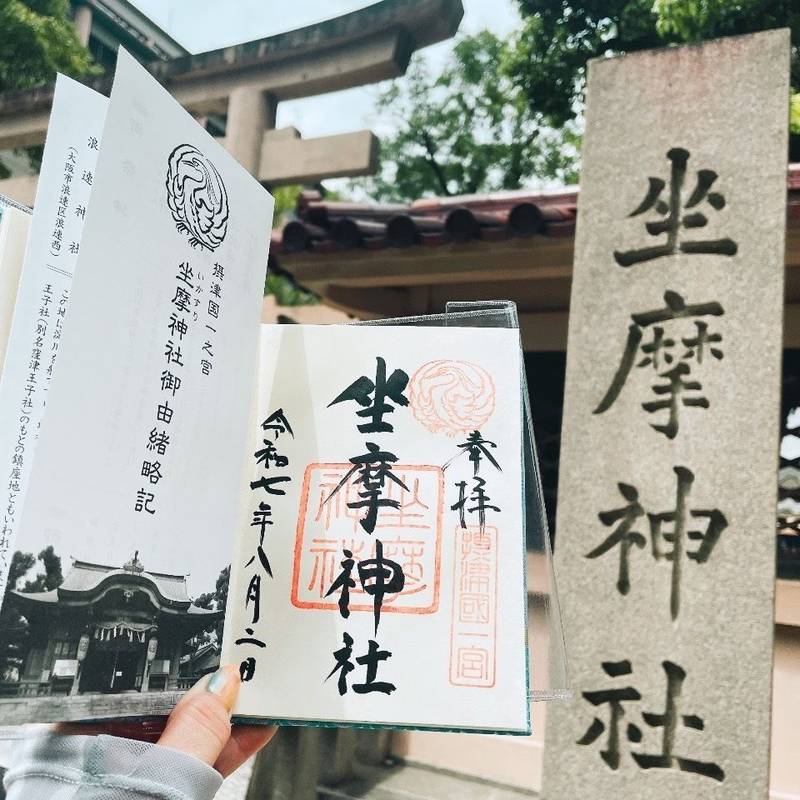 坐摩神社
奉拝
摂津國一宮
坐摩神社
坐摩神社
令和七年八月二日
摂津国一之宮
いかすり
坐摩神社御由緒略記
浪速神社
(大阪市浪速区浪速西)
この地に
王子社(別名窪津王子社)のもとの鎮座地ともいわれていま